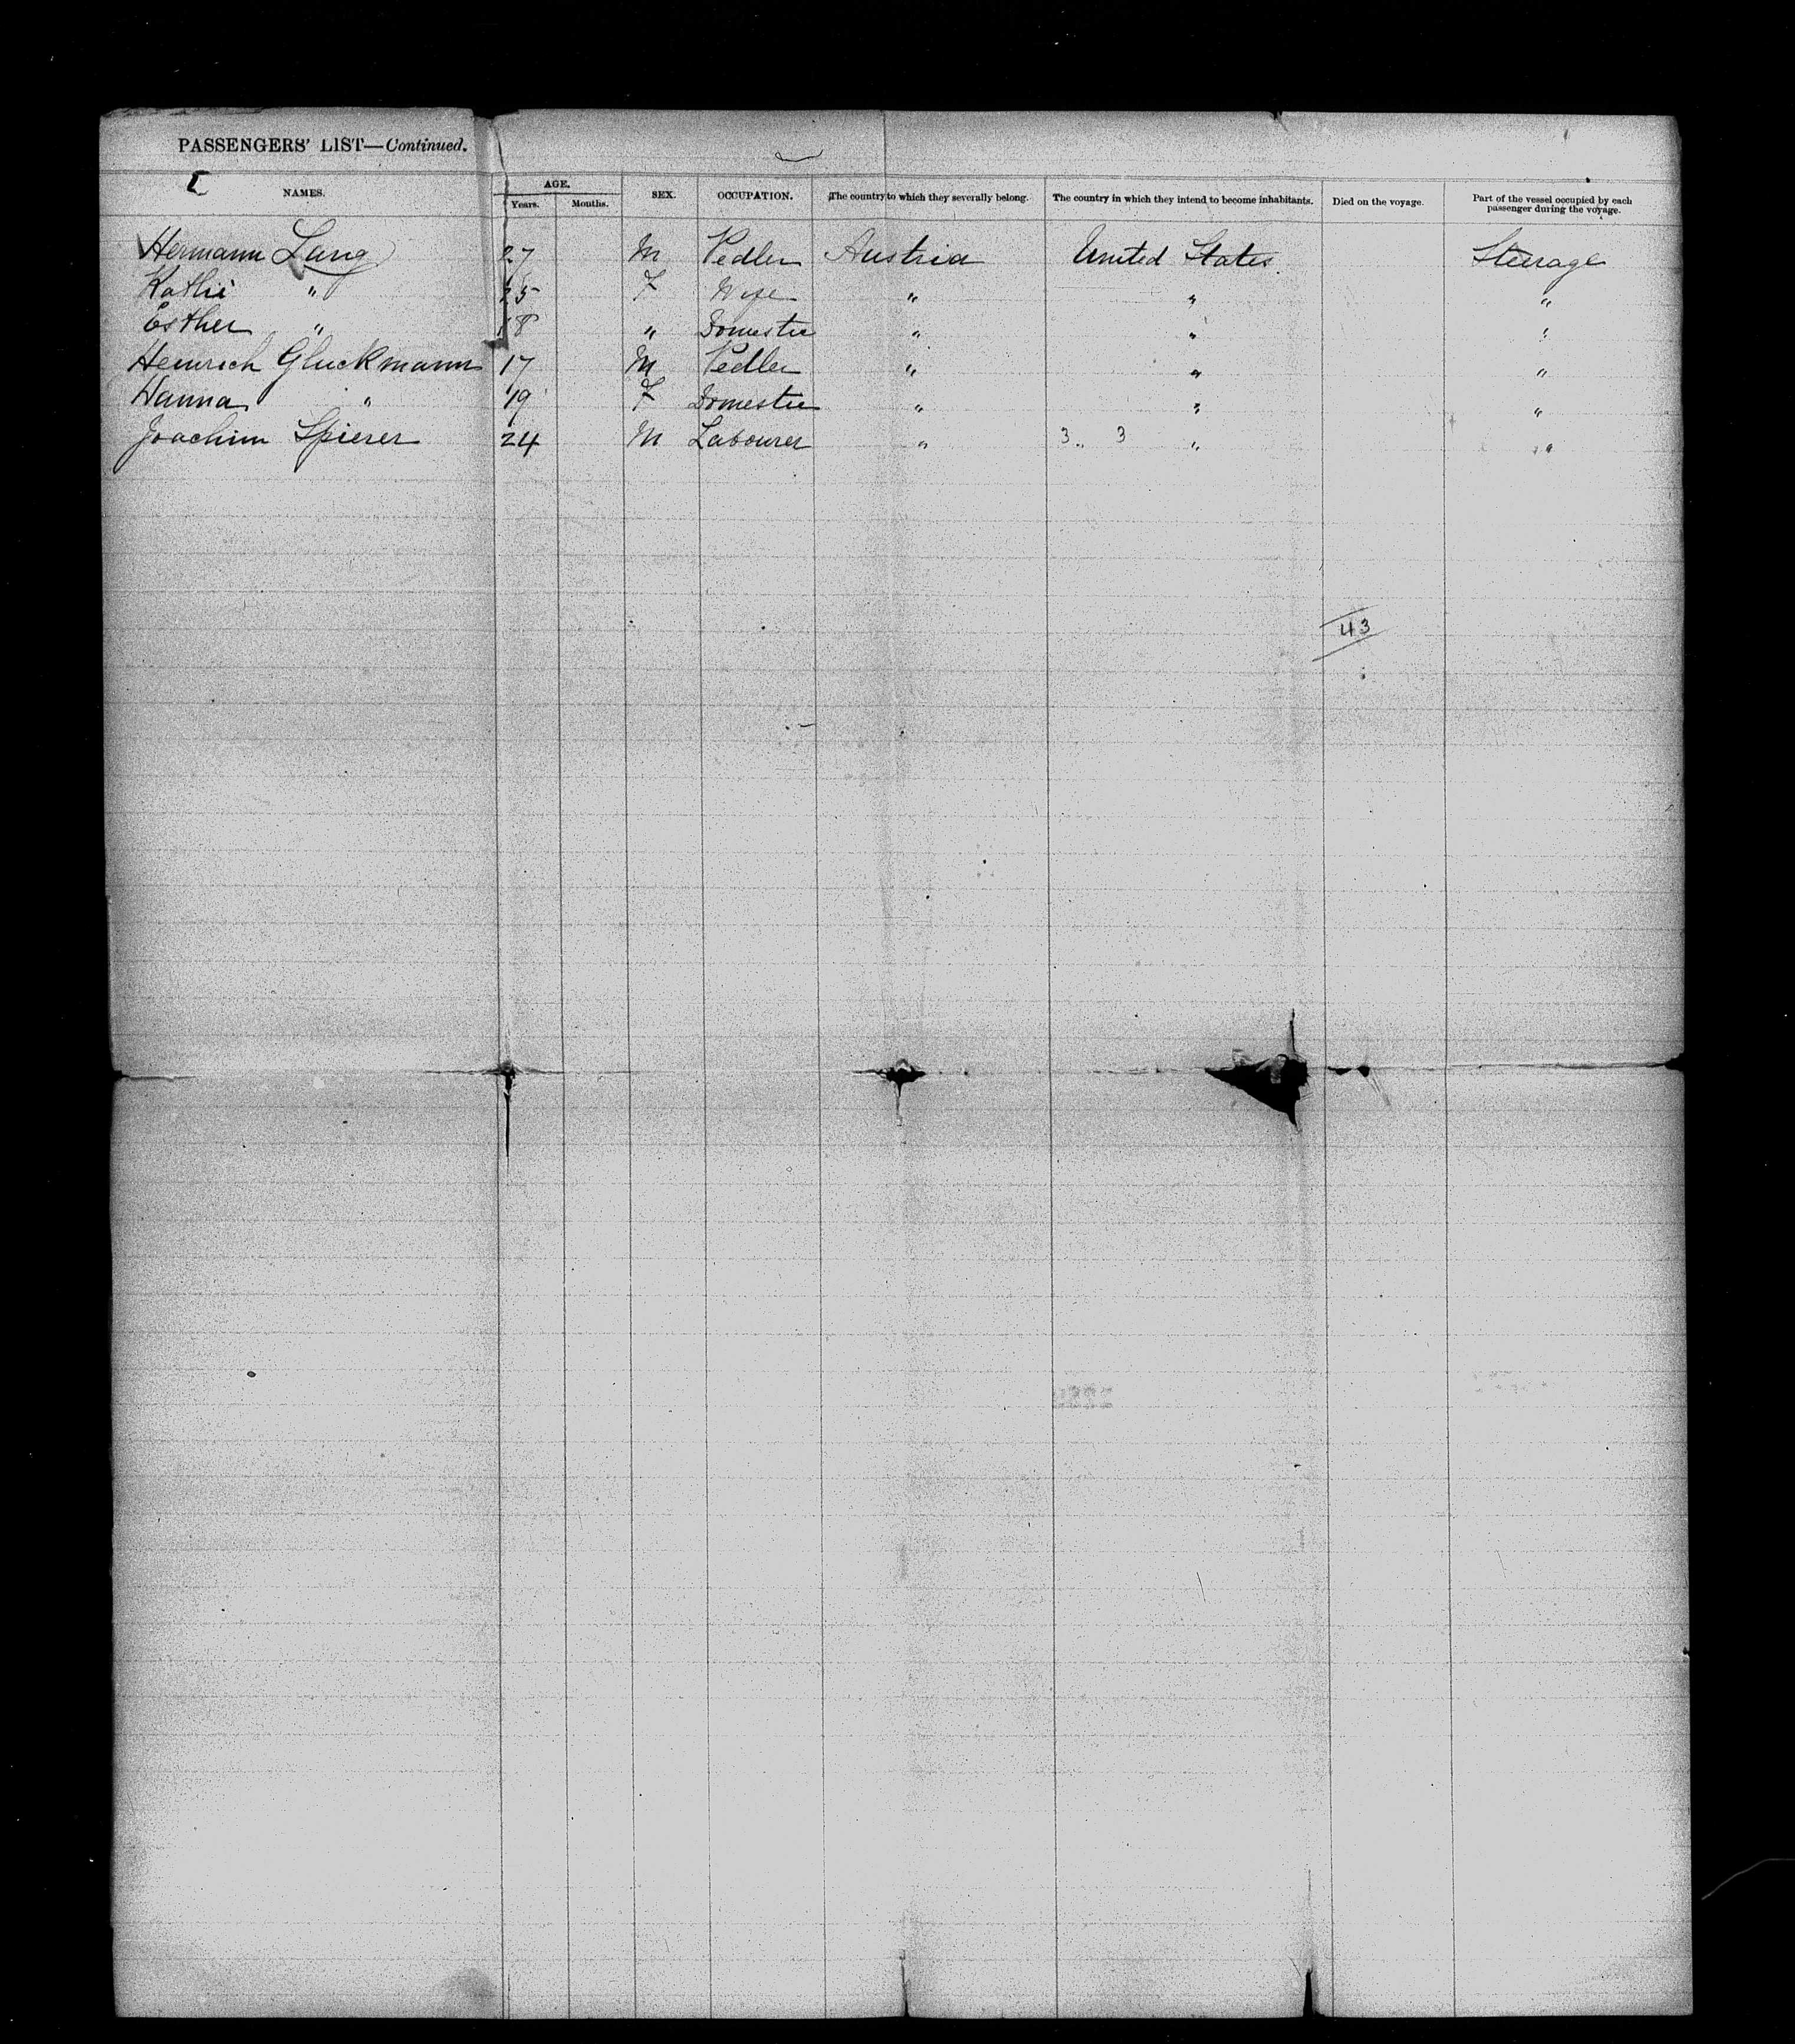 PASSENGERS' LIST—Continued.
NAMES. AGE. SEX. OCCUPATION. The country to which they severally belong. The country in which they intend to become inhabitants. Died on the voyage. Part of the vessel occupied by each passenger during the voyage.
Years. Months.
Hermann Lang 27 M Pedler Austria United States. Steerage
Kathi " 25 F Wife " " "
Esther " 18 " Domestic " " "
Heinrich Gluckmann 17 M Pedler " " "
Hanna " 19 F Domestic " " "
Joachim Spierer 24 M Labourer " 3.. 3 " "
43